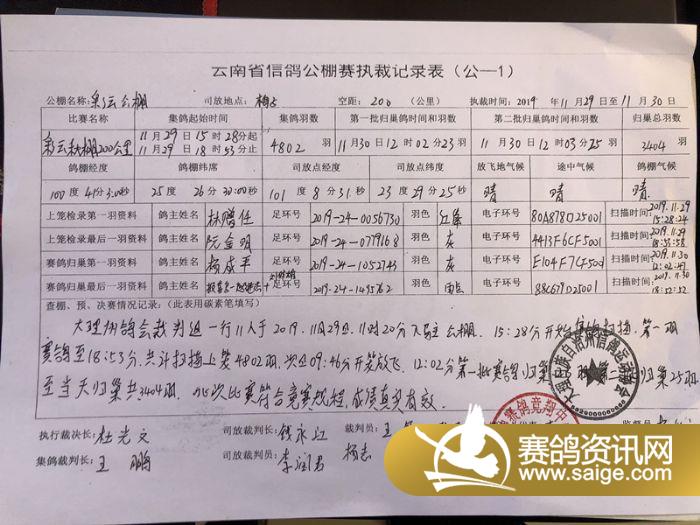 云南省信鸽公棚赛执裁记录表（公—1）
公棚名称: 彩云公棚 司放地点: 空距: 200 (公里) 执裁时间: 2019 年 11月29日至11月30日
比赛名称 集鸽起始时间 集鸽羽数 第一批归巢鸽时间和羽数 第二批归巢鸽时间和羽数 归巢总羽数
彩云秋棚200公里 11月29日15时28分起 4802羽 11月30日12时02分23羽 11月30日12时03分25羽 3404羽
11月29日18时53分止
鸽棚经度 鸽棚纬席 司放点经度 司放点纬度 放飞地气候 途中气候 鸽棚气候
25度 26分 30:00秒 101度 8分31秒 23度29分25秒 晴 晴 晴
上笼检录第一羽资料 鸽主姓名 林赠任 足环号 2019-24-0056730 羽色 红绛 电子环号 80A878D25001 扫描时间 2019.11.29 15:28:24
上笼检录最后一羽资料 鸽主姓名 阮金明 足环号 2019-24-0779168 羽色 灰 电子环号 4413F6CF5001 扫描时间 2019.11.29 18:53:58
赛鸽归巢第一羽资料 鸽主姓名 杨成平 足环号 2019-24-1052743 羽色 灰 电子环号 E104F7CF5001 扫描时间 2019.11.30
赛鸽归巢最后一羽资料 鸽主姓名 足环号 2019-24-1495762 羽色 电子环号 88C679D25001 扫描时间 2019.11.30 18:52:52
查棚、预、决赛情况记录:（此表用碳素笔填写）
大理州鸽会裁判组一行11人于2019.11月29日，11时20分 公棚。15:28分开始 扫描，第一羽
赛鸽至18:53分，共计扫描上笼4802羽，次日09:46分开笼放飞，12:02分第一批赛鸽归巢 羽 第二 归巢25羽
至当天归巢共3404羽。此次比赛符合竞赛规程，成绩真实有效。
执行裁决长: 杜光文 司放裁判长: 钱永江 裁判员: 王
集鸽裁判长: 王鹏 司放裁判员: 李润君 杨志
赛鸽资讯网
www.saige.com